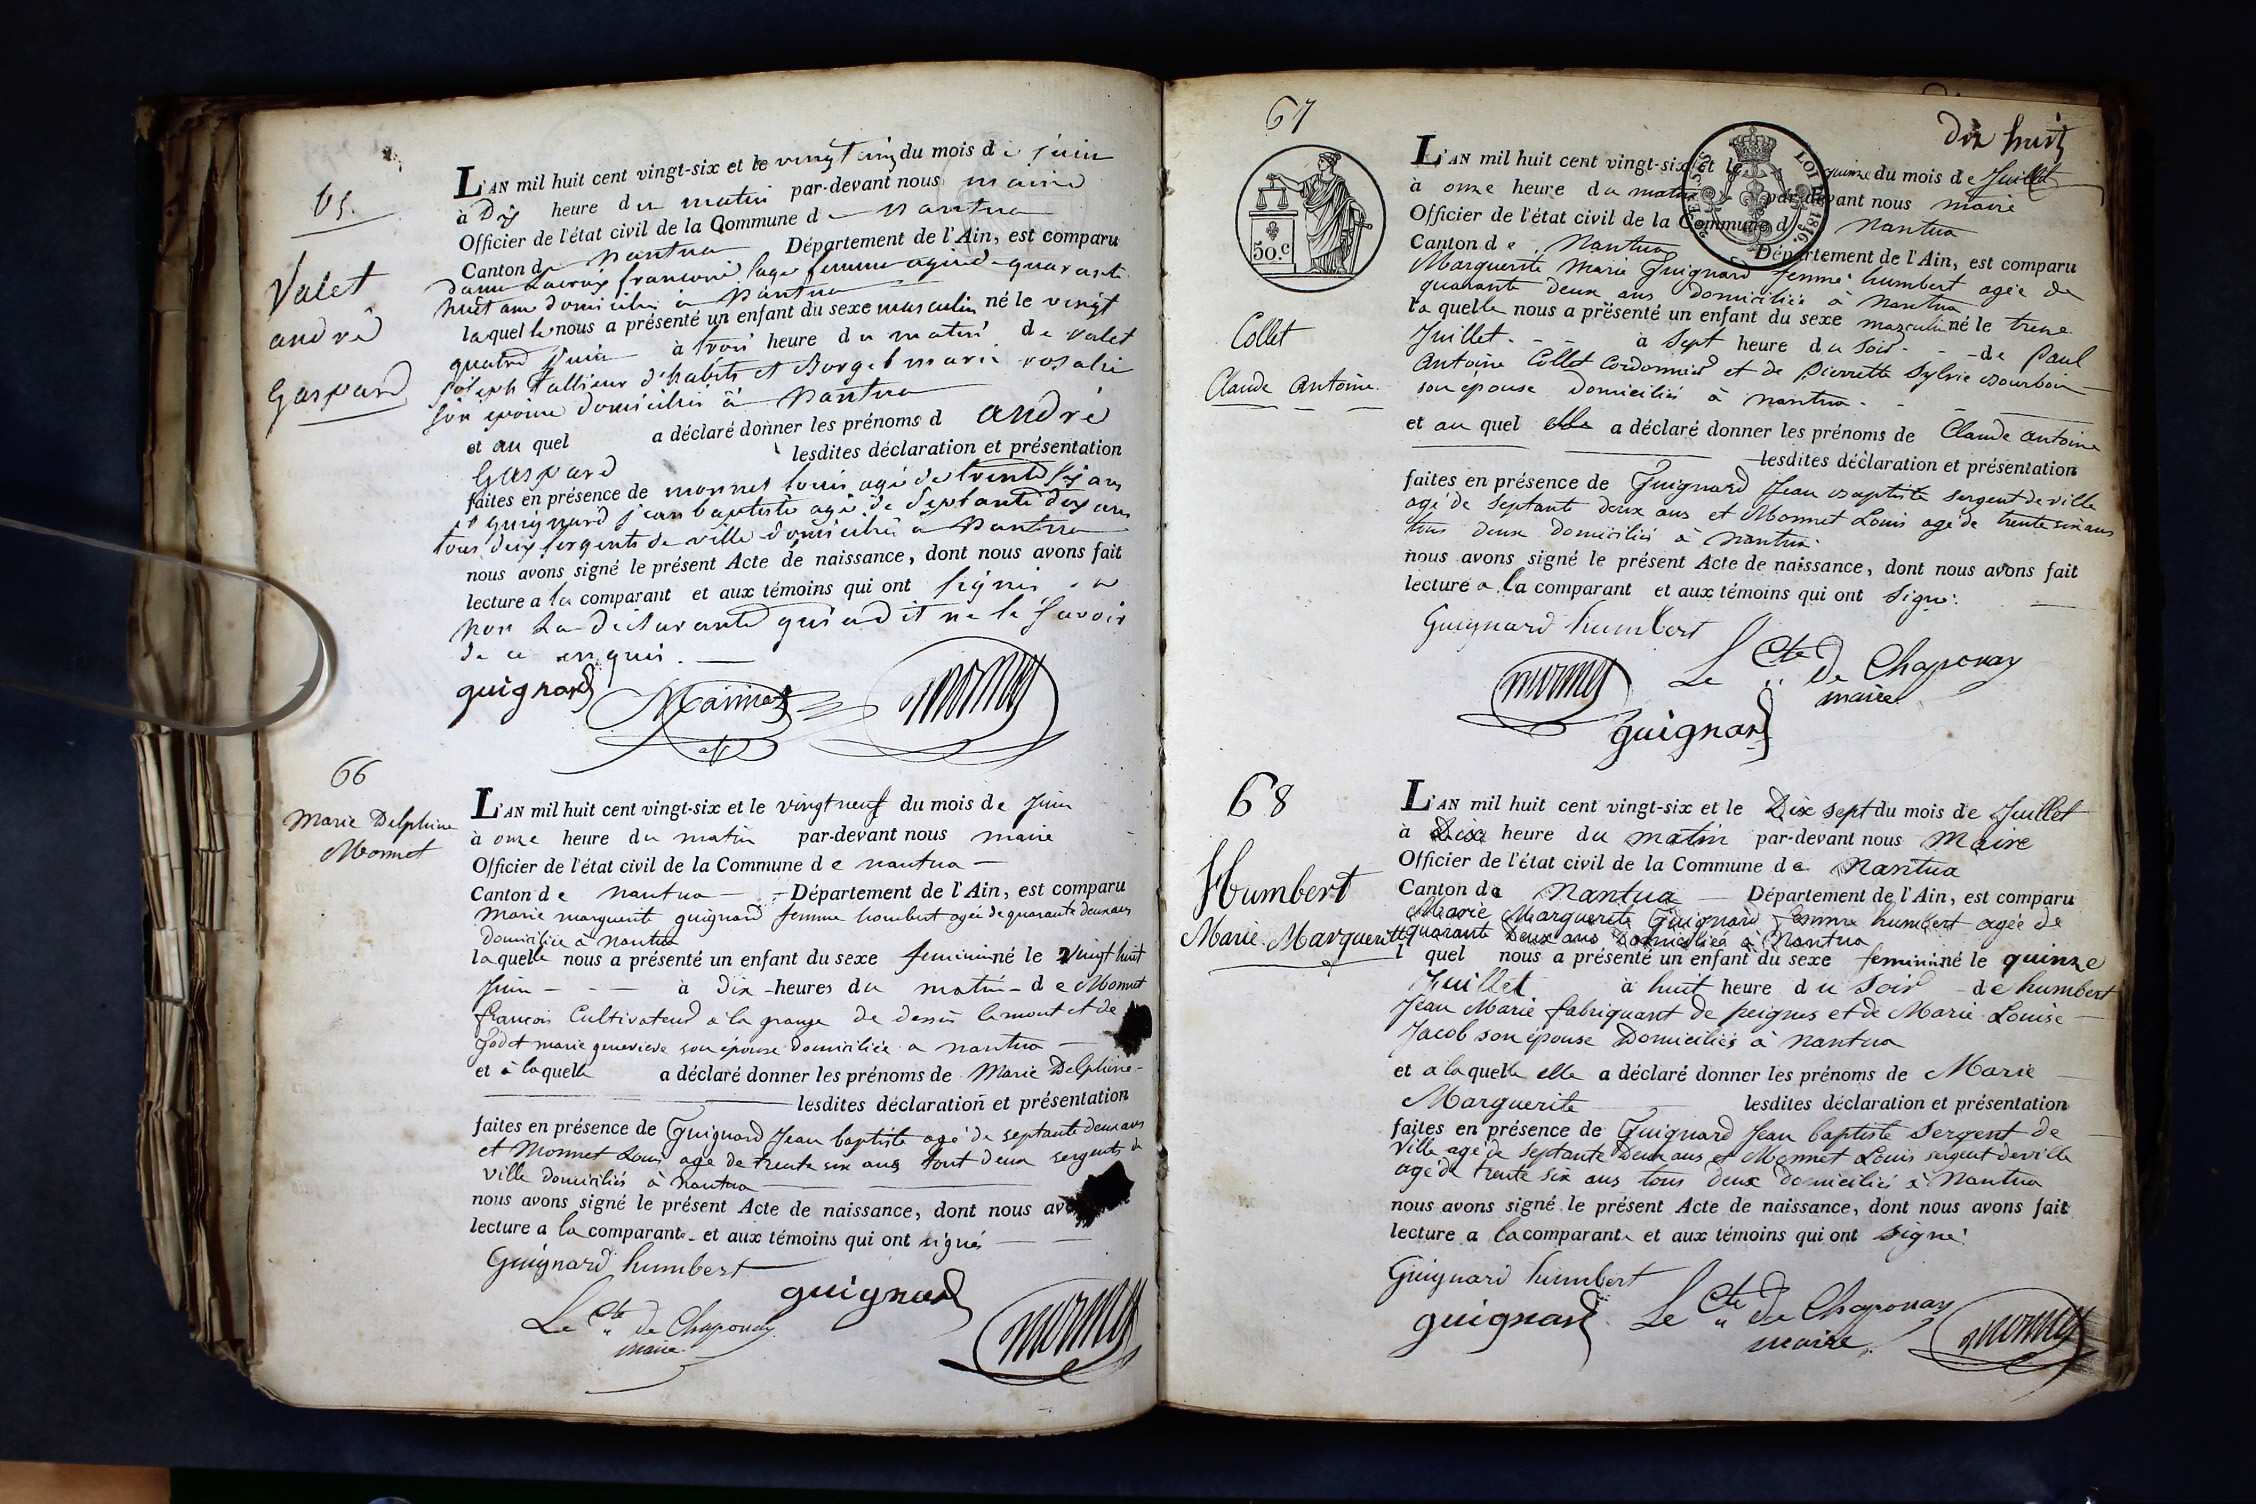 65.
Valet
andré
Gaspard
L'AN mil huit cent vingt-six et le vingt cinq du mois de juin
à Dix heure du matin par-devant nous maire
Officier de l'état civil de la Commune de Nantua
Canton de Nantua Département de l'Ain, est comparu
dame Lacroix francoise sage femme agée de quarante
huit ans domiciliée à Nantua
laquelle nous a présenté un enfant du sexe masculin né le vingt
quatre juin à trois heure du matin de Valet
joseph tallieur d'habits et Borget marie rosalie
son epouse domiciliés à Nantua
et au quel a déclaré donner les prénoms d andré
Gaspard lesdites déclaration et présentation
faites en présence de monnet louis agé de trente six ans
et guignard jean baptiste agé de septante deux ans
tous deux sergents de ville domiciliés à Nantua
nous avons signé le présent Acte de naissance, dont nous avons fait
lecture a la comparant et aux témoins qui ont signés
non la déclarante qui a dit ne le savoir
de ce enquis.
guignard monnet
66
Marie Delphine
Monnet
L'AN mil huit cent vingt-six et le vingt neuf du mois de Juin
à onze heure du matin par-devant nous maire
Officier de l'état civil de la Commune de nantua
Canton de nantua Département de l'Ain, est comparu
Marie marguerite guignard femme humbert agée de quarante deux ans
domiciliée à nantua
laquelle nous a présenté un enfant du sexe feminin né le vingt huit
Juin à dix heures du matin de Monnet
françois Cultivateur à la grange de dessus le mont et de
Godet marie genevieve son épouse domiciliée a nantua
et à laquelle a déclaré donner les prénoms de Marie Delphine
lesdites déclaration et présentation
faites en présence de Guignard Jean baptiste agé de septante deux ans
et Monnet Louis agé de trente six ans tout deux sergents de
ville domiciliés à nantua
nous avons signé le présent Acte de naissance, dont nous av
lecture a la comparante et aux témoins qui ont signés
Guignard humbert
guignard
Le Cte de Chaponay
maire
monnet
67
dix huit
LOI DE 1816.
50.c
Collet
Claude Antoine
L'AN mil huit cent vingt-six et le quinze du mois de Juillet
à onze heure du matin par-devant nous maire
Officier de l'état civil de la Commune d Nantua
Canton de Nantua Département de l'Ain, est comparu
Marguerite Marie Guignard femme humbert agée de
quarante deux ans domiciliée à nantua
la quelle nous a présenté un enfant du sexe masculin né le treize
Juillet à sept heure du soir de Paul
Antoine Collet Cordonnier et de Pierrette Sylvie Bourbon
son épouse domiciliés à nantua
et au quel elle a déclaré donner les prénoms de Claude antoine
lesdites déclaration et présentation
faites en présence de Guignard Jean Baptiste sergent de ville
agé de septante deux ans et Monnet Louis agé de trente six ans
tous deux domiciliés à nantua
nous avons signé le présent Acte de naissance, dont nous avons fait
lecture a la comparant et aux témoins qui ont signé.
Guignard humbert
Le Cte de Chaponay
maire
monnet
guignard
68
Humbert
Marie Marguerite
L'AN mil huit cent vingt-six et le Dix sept du mois de Juillet
à Dix heure du matin par-devant nous Maire
Officier de l'état civil de la Commune de Nantua
Canton de Nantua Département de l'Ain, est comparu
Marie Marguerite Guignard femme humbert agée de
quarante Deux ans Domiciliée à Nantua
l quel nous a présenté un enfant du sexe feminin né le quinze
Juillet à huit heure du soir de humbert
Jean Marie fabriquant de peignes et de Marie Louise
Jacob son épouse Domiciliés à nantua
et a laquelle elle a déclaré donner les prénoms de Marie
Marguerite lesdites déclaration et présentation
faites en présence de Guignard Jean baptiste Sergent de
Ville agé de septante Deux ans et Monnet Louis sergent de ville
agé de trente six ans tous deux domiciliés à Nantua
nous avons signé le présent Acte de naissance, dont nous avons fait
lecture a la comparante et aux témoins qui ont signé
Guignard humbert
guignard Le Cte de Chaponay
maire monnet